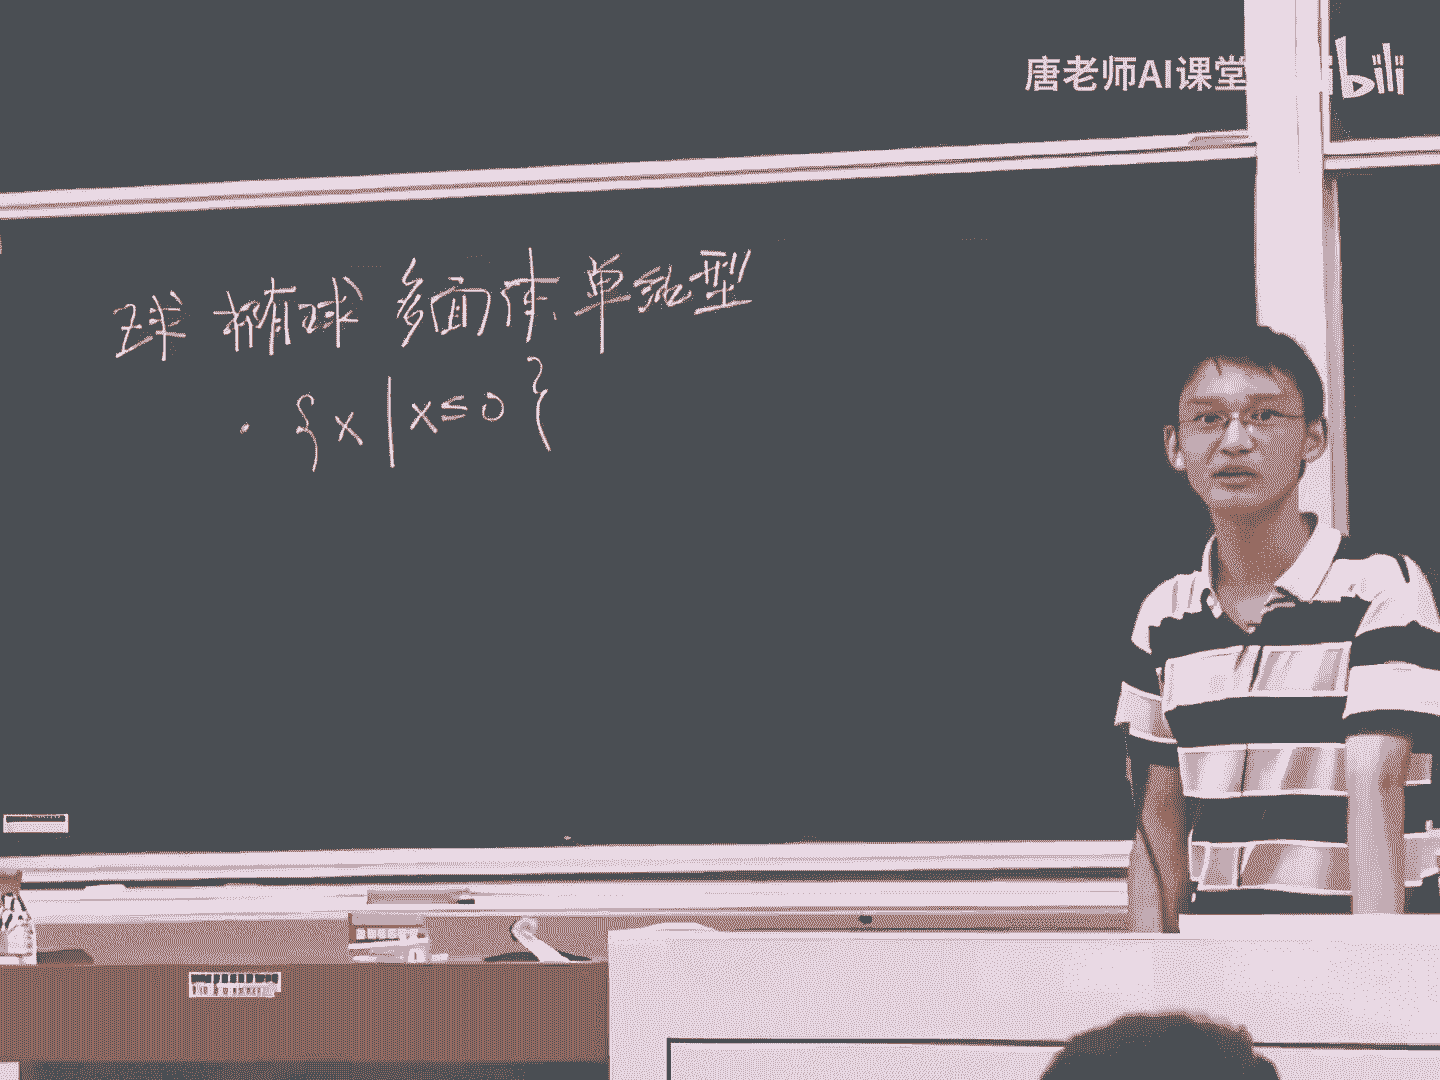 唐老师AI课堂 bili
球 椭球 多面体 单纯型
· {x | x ≤ 0}